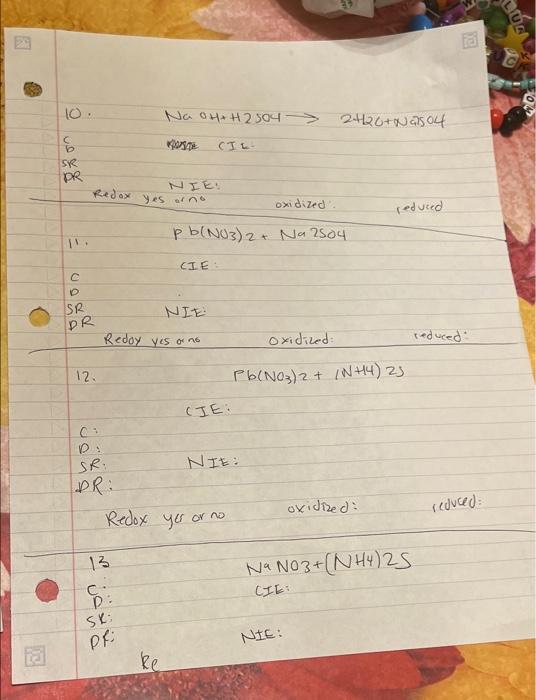 10. NaOH+H2SO4 → 2H2O+Na2SO4
C CIE:
D
SR
DR NIE:
Redox yes or no oxidized: reduced
11. Pb(NO3)2+ Na2SO4
CIE:
C
D
SR NIE:
DR
Redox yes or no oxidized: reduced:
12. Pb(NO3)2+ (NH4)2S
CIE:
C:
D:
SR: NIE:
DR:
Redox yes or no oxidized: reduced:
13 NaNO3+(NH4)2S
C: CIE:
D:
SR:
DR: NIE:
Re